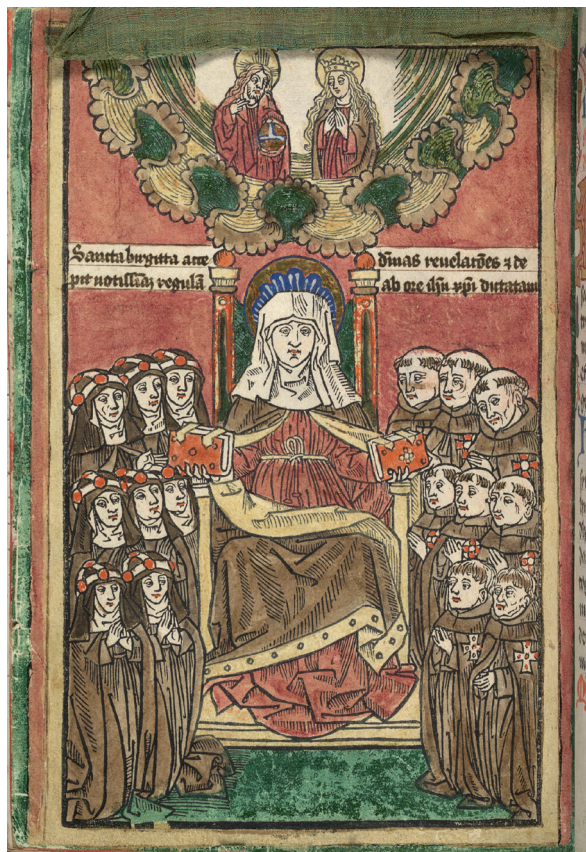 Sancta birgitta acce
pit notissimāʒ regulā
dīnas reuelatōes ⁊ de
ab ore dn̄i xp̄i dictatam